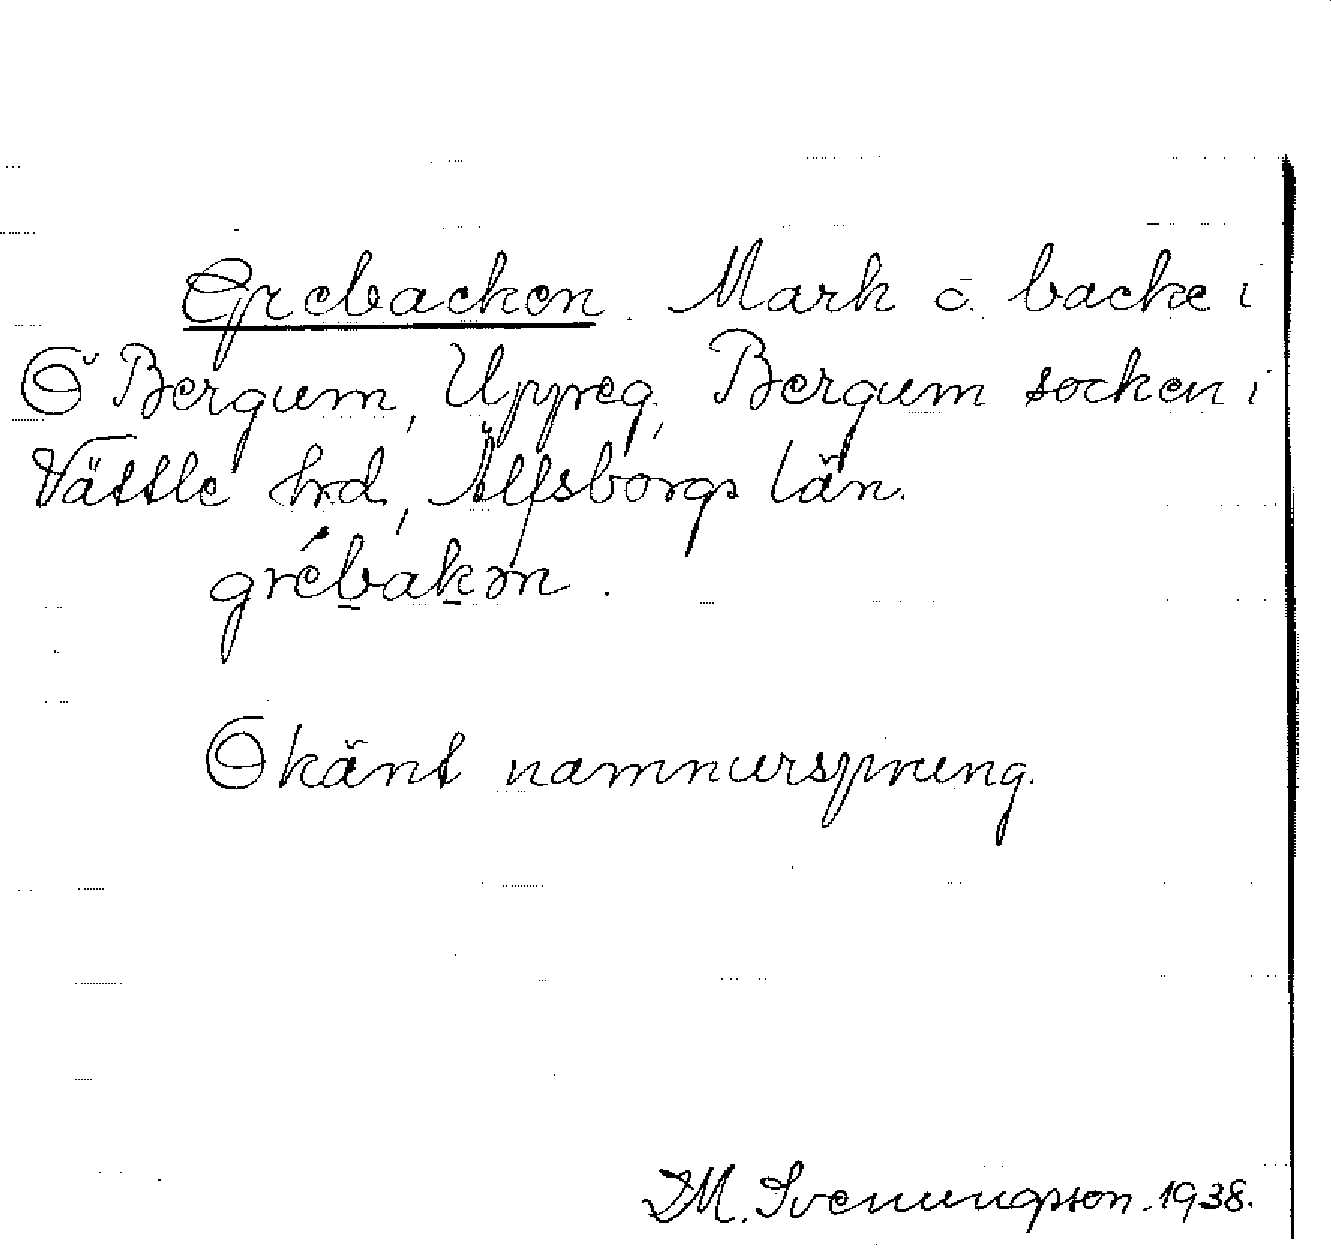 Grebacken. Mark o. backe i
Ö Bergum, Uppreg, Bergum socken i
Vättle hrd, Älfsborgs län.
grébakən.
Okänt namnursprung.
DM. Svenungsson. 1938.